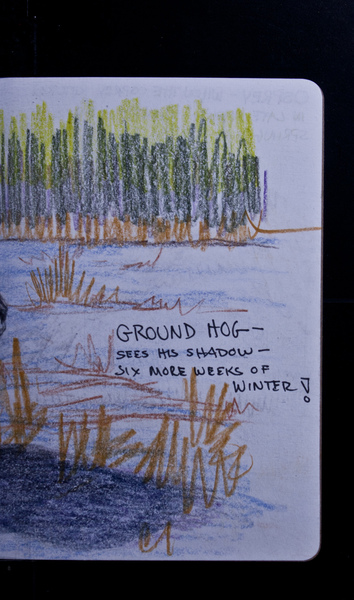 GROUND HOG—
SEES HIS SHADOW—
SIX MORE WEEKS OF
WINTER!